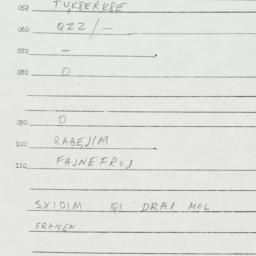 058 TYK8ERK8E
060 QZZ/—
070 —
080 O
090 O
100 RABEJIM
110 FAJNEFROJ
SXIDIM QI DRAI MOL
FRANEN